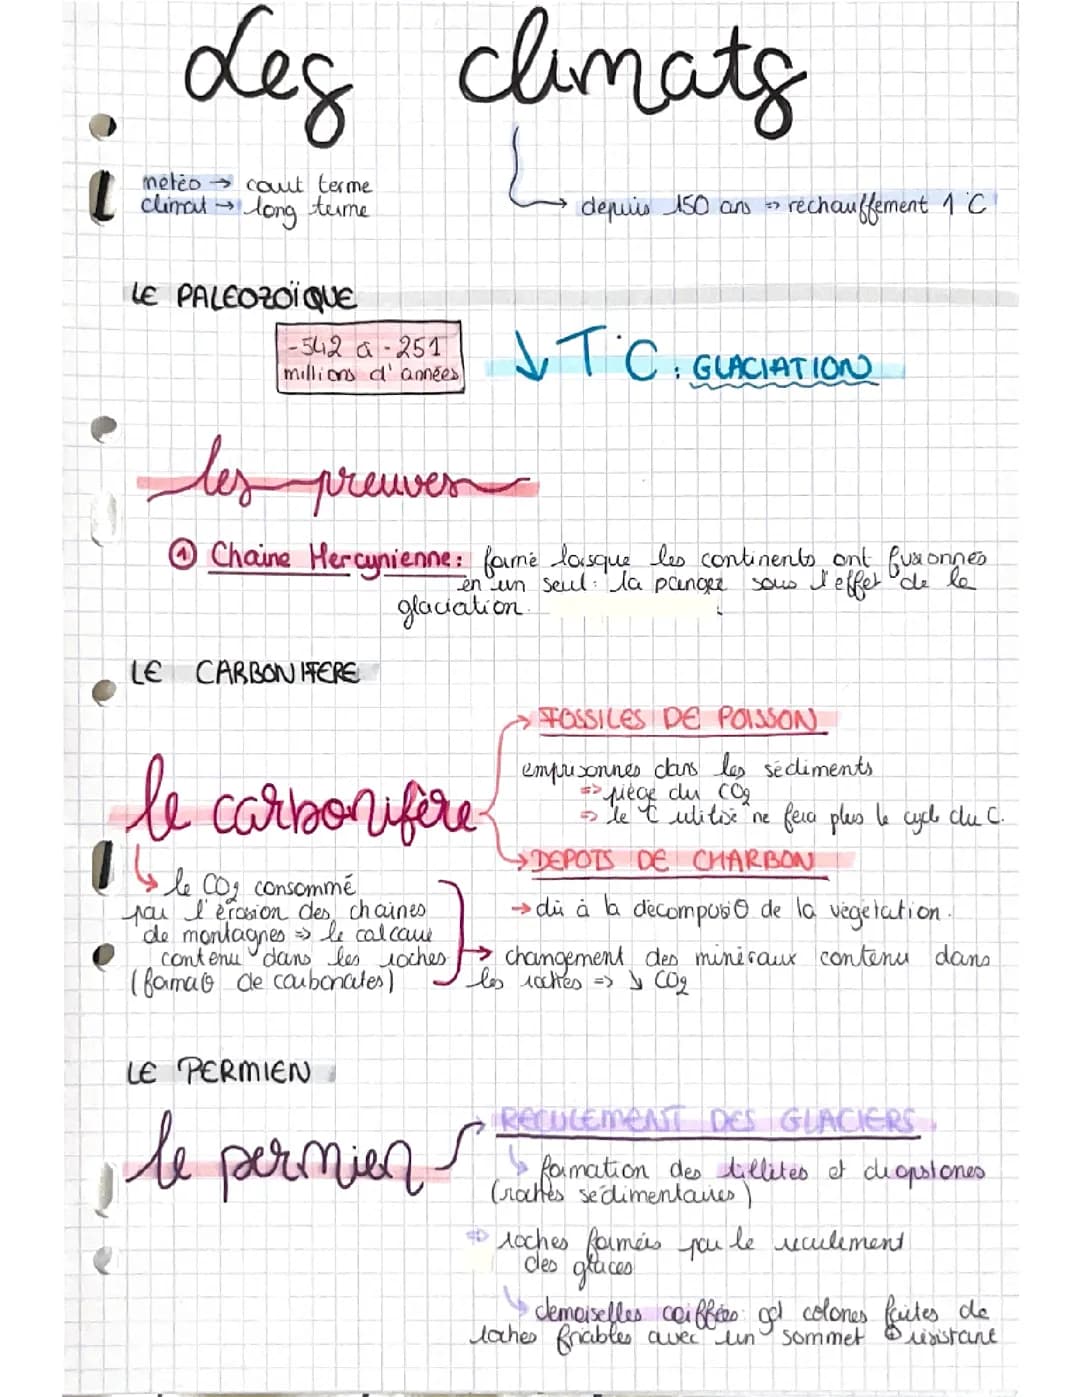 des climats
météo → court terme
climat → long terme
→ depuis 150 ans => réchauffement 1°C
LE PALEOZOÏQUE
-542 à -251
millions d'années
↓ T°C : GLACIATION
les preuves
① Chaine Hercynienne : formé lorsque les continents ont fusionnés
en un seul : la pangée sous l'effet de la
glaciation.
LE CARBONIFERE
→ FOSSILES DE POISSON
emprisonnés dans les sédiments
=> piège du CO2
=> le C utilisé ne fera plus le cycle du C.
le carbonifère
→ DEPOTS DE CHARBON
→ dû à la décomposiΘ de la végétation.
↳ le CO2 consommé
par l'érosion des chaines
de montagnes => le calcaire
contenu dans les roches
(formaΘ de carbonates)
→ changement des minéraux contenu dans
les roches => ↘ CO2
LE PERMIEN
le permien
→ RECULEMENT DES GLACIERS.
↳ formation des tillites et dropstones
(roches sédimentaires)
=> roches formées par le reculement
des glaces
↳ demoiselles coiffées: gd colones faites de
roches friables avec un sommet ⊕ résistant